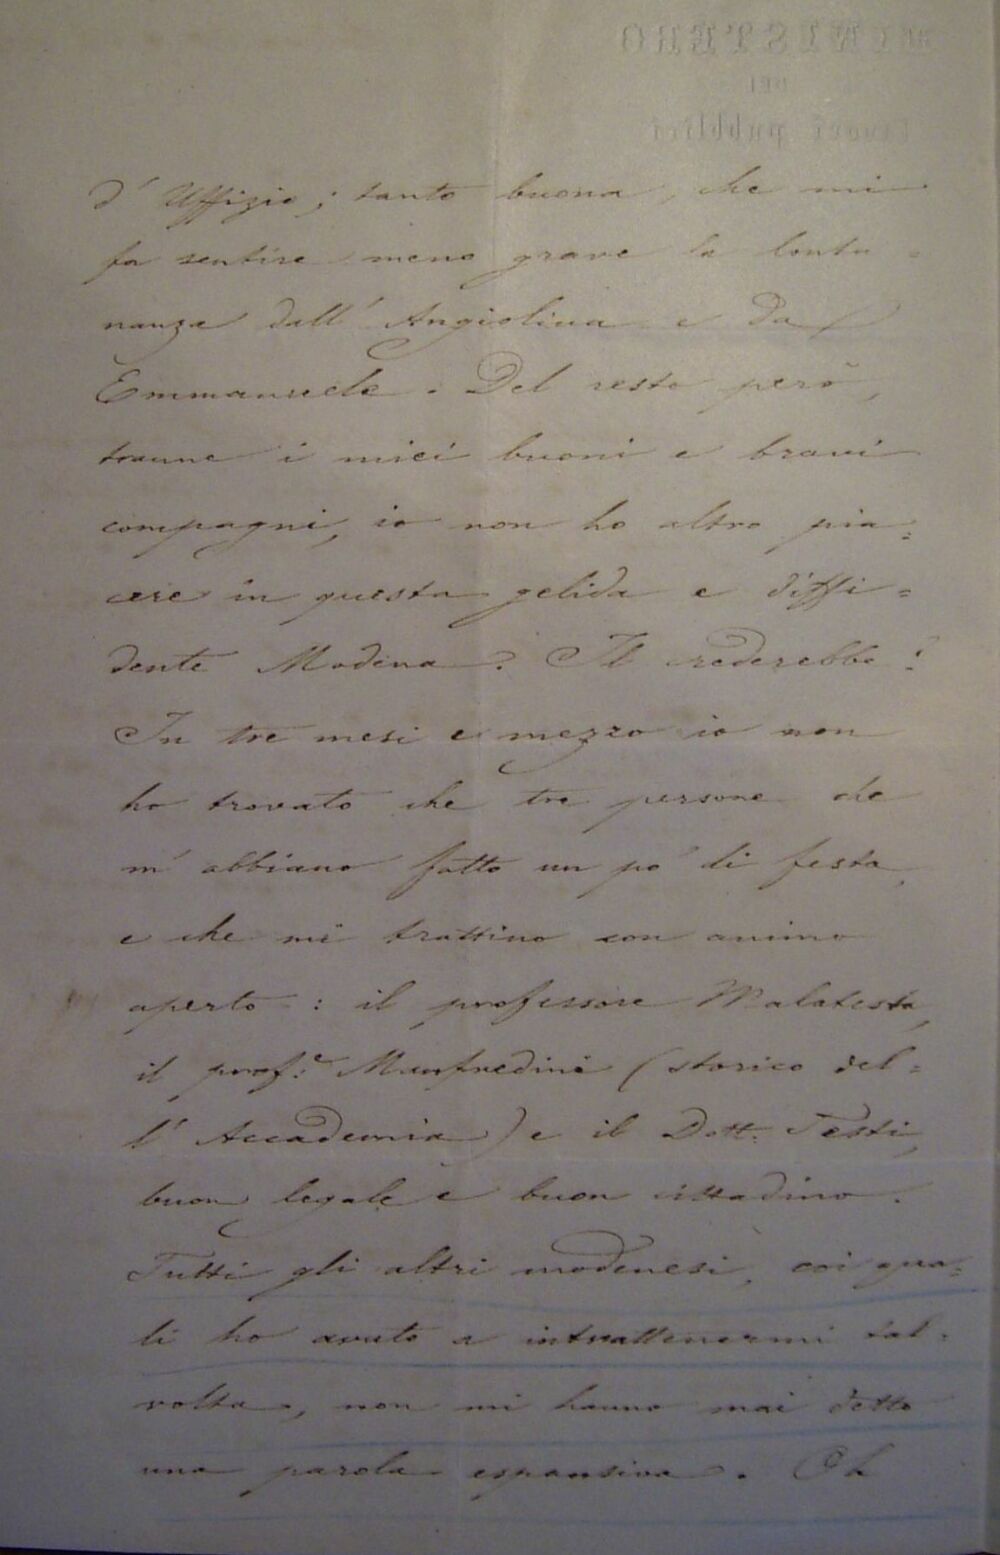 MINISTERO
DEI
Lavori pubblici
d' Uffizio; tanto buona, che mi
fa sentire meno grave la lonta=
nanza dall' Angiolina e da
Emmanuele. Del resto però,
tranne i miei buoni e bravi
compagni, io non ho altro pia=
cere in questa gelida e diffi=
dente Modena. Il crederebbe?
In tre mesi e mezzo io non
ho trovato che tre persone che
m' abbiano fatto un po' di festa,
e che mi trattino con animo
aperto: il professore Malatesta,
il prof.e Manfredini (storico del=
l' Accademia) e il Dott. Testi,
buon legale e buon cittadino.
Tutti gli altri modenesi, coi qua=
li ho avuto a intrattenermi tal=
volta, non mi hanno mai detto
una parola espansiva. Oh